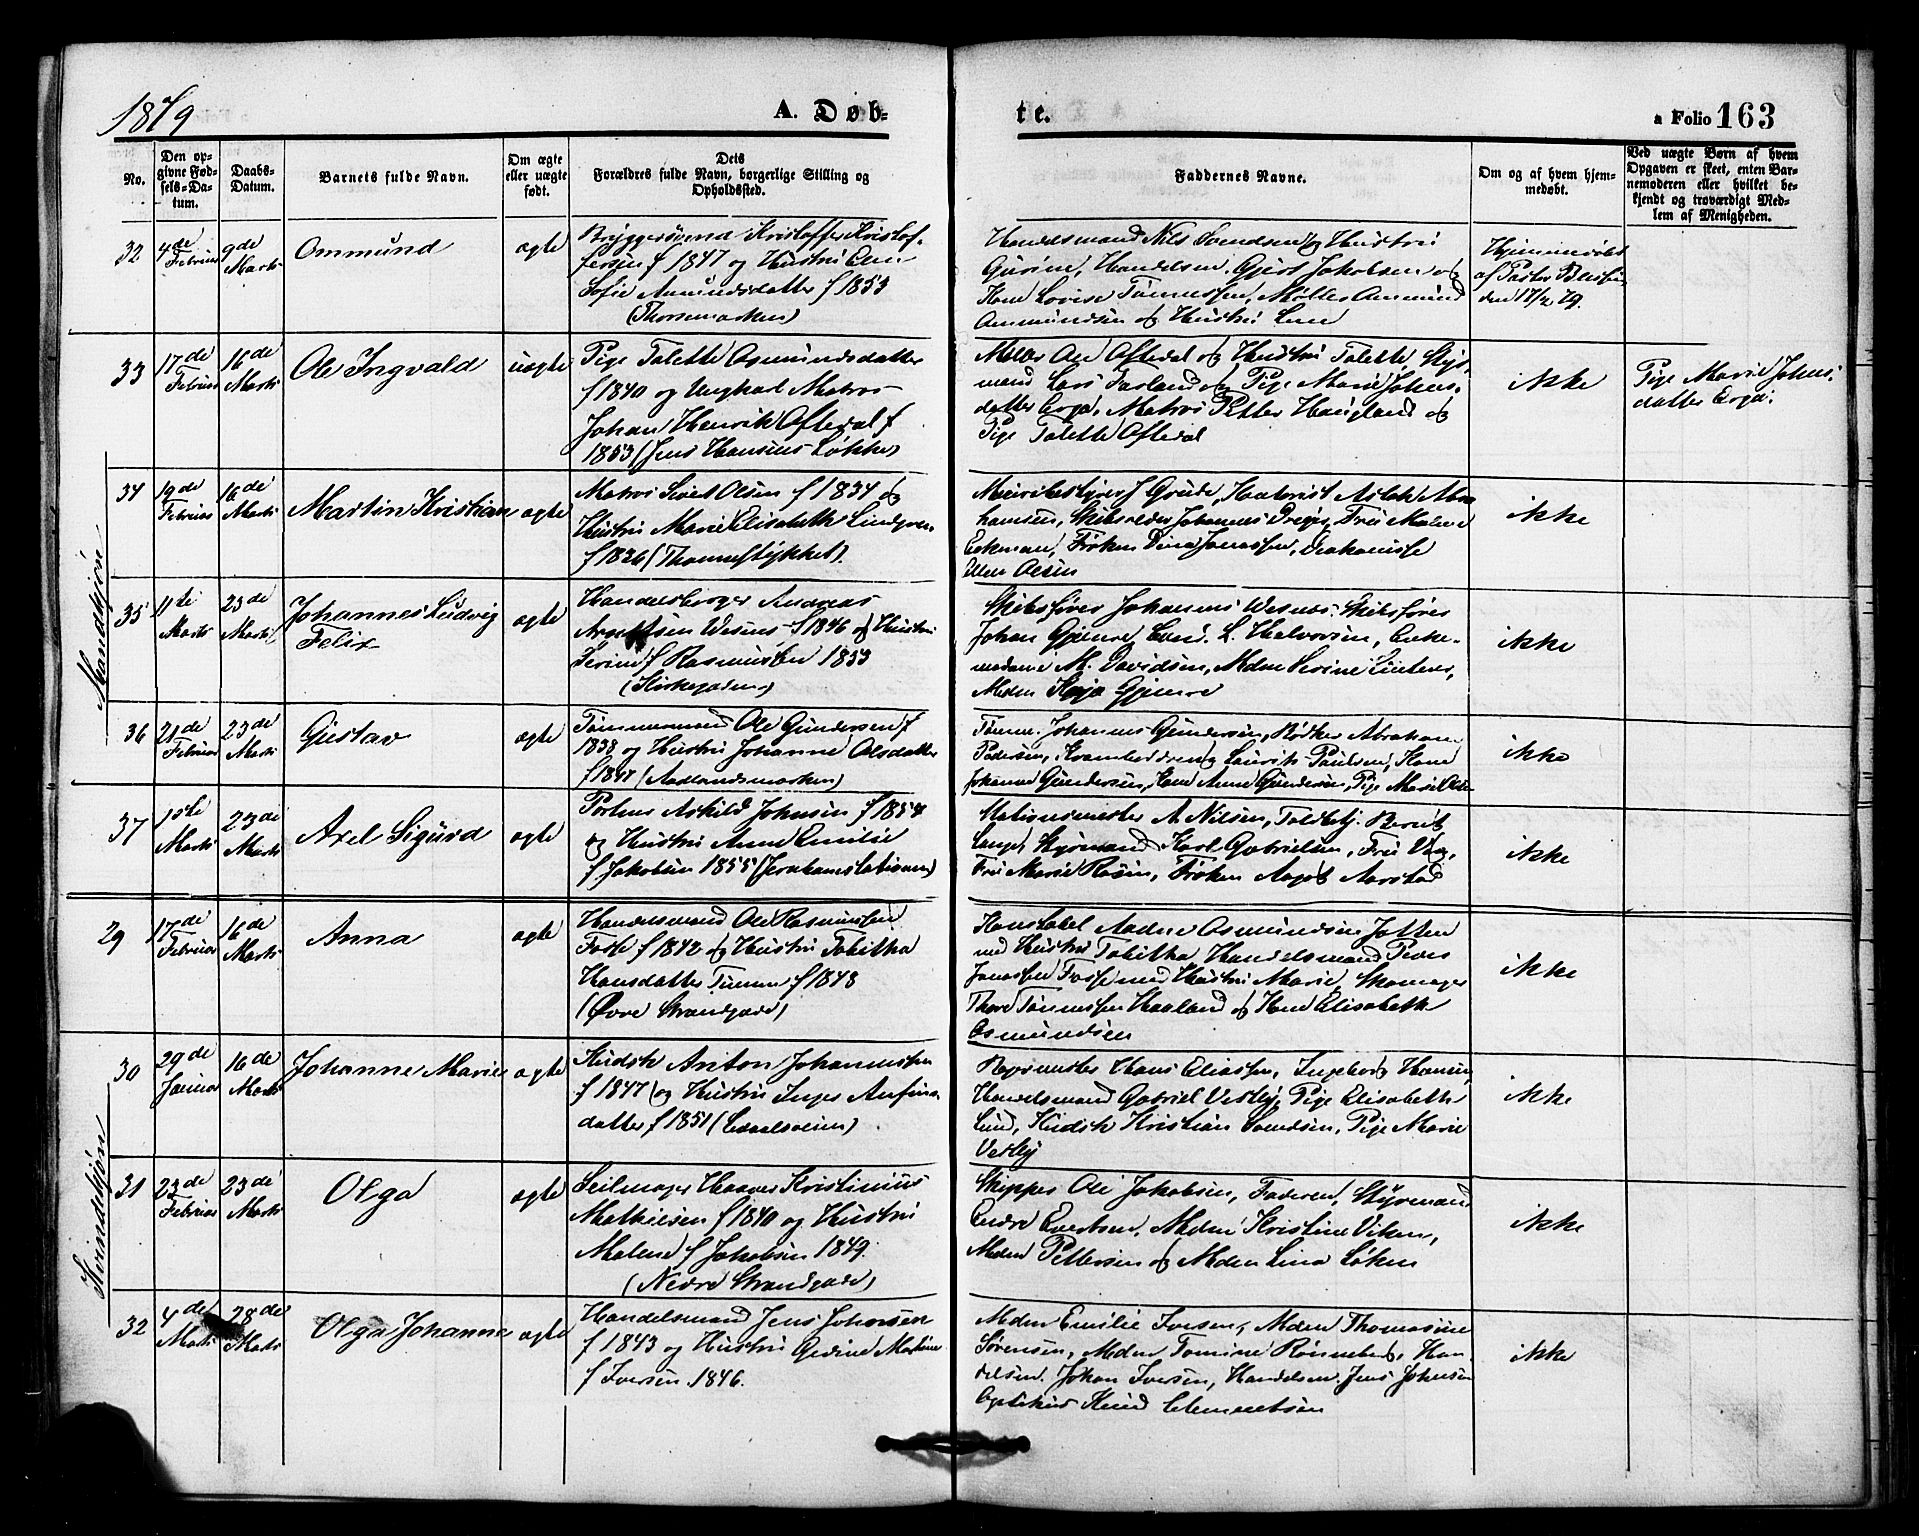 1879
A. Døb-
te.
a Folio 163
No.
Den op-
givne Fød-
sels-Da-
tum.
Daabs-
Datum.
Barnets fulde Navn.
Om ægte
eller uægte
født.
Dets
Forældres fulde Navn, borgerlige Stilling og
Opholdssted.
Faddernes Navne.
Om og af hvem hjem-
medøbt.
Ved uægte Børn af hvem
Opgaven er skeet, enten Bar-
nemoderen eller hvilket be-
kjendt og troværdigt Med-
lem af Menigheden.
Mandkjøn
32
4de
Februar
9de
Marts
Ommund
ægte
Kristoffer Kristof-
fersen f 1847 og Hustru
Sofie Amundsdatter f 1853
Handelsmand Nils Svendsen og Hustru
Gurine, Handelsm. Gjert Jakobsen og
Kone Lovise Tønnessen, Møller Ommund
Ommundsen og Hustru Lene
Hjemmedøbt
af Pastor
den 17/2 79.
33
17de
Februar
16de
Marts
Ole Ingvald
uægte
Pige Talette Osmundsdatter
f 1840 og Ungkarl Matros
Johan Henrik Oftedal f
1853 (Jens Hansens Løkke)
Møller Ole Oftedal og Hustru Talette, Styr-
mand Lars Farland og Pige Marie Johns-
datter Erga, Matros Petter Haugland og
Pige Talette Oftedal
ikke
Pige Marie Johns-
datter Erga.
34
19de
Februar
16de
Marts
Martin Kristian
ægte
Matros Sivert Olsen f 1834 og
Hustru Marie Elisabeth Lindgren
f 1836
Grude, Aslak Abra-
hamsen, Skibsreder Johannes Preyer, Fru Malene
Eckman, Frøken Dina Jonassen, Diakonisse
Ellen Olsen
ikke
35
11te
Marts
23de
Marts
Johannes Ludvig
Felix
ægte
Handelsborger Andreas
Wesnes f 1846 og Hustru
Serine f Rasmussen 1853
(Kirkegaden)
Skibsfører Johannes Wesnes, Skibsfører
Johan Gjemre, Cand. L. Halvorsen, Enke-
madame M. Davidsen, Mdm Serine
Mdm Kaja Gjemre
ikke
36
21de
Februar
23de
Marts
Gustav
ægte
Tømmermand Ole Gundersen f
1838 og Hustru Johanne Olsdatter
f 1847 (Aadlandsmarken)
Tømm. Johannes Gundersen, Bødker Abraham
Pedersen, Lauritz Paulsen, Kone
Johanne Gundersen, Kone Anne Gundersen, Pige
ikke
37
1ste
Marts
23de
Marts
Axel Sigurd
ægte
Askild Johnsen f 1854
og Hustru Anne Emilie
f Jakobsen 1855 (Jernbanestationen)
Stationsmester A Nilsen, Toldbetj. Berut
Lange, Styrmand Karl Gabrielsen, Fru
Fru Marie Rosen, Frøken Aagot Aarstad
ikke
Kvindekjøn
29
17de
Februar
16de
Marts
Anna
ægte
Handelsmand Ole Rasmussen
Fosse f 1842 og Hustru Tobitha
Hansdatter f 1848
(Øvre Strandgade)
Konstabel Osmundsen Jotten
med Hustru Tobitha, Handelsmand Peder
Jonassen Fosse med Hustru Marie, Skomager
Thore Tønnessen Haaland og Kone Elisabeth
Osmundsen
ikke
30
29de
Januar
16de
Marts
Johanne Marie
ægte
Kudsk Anton Johannessen
f 1847 og Hustru Inger
datter f 1851
Hans Eliassen, Ingeborg Hansen,
Handelsmand Gabriel Vestby, Pige Elisabeth
Lund, Kudsk Kristian Svendsen, Pige Marie
Vestby
ikke
31
23de
Februar
23de
Marts
Olga
ægte
Seilmager Kristinius
Mathiesen f 1840 og Hustru
Malene f Jakobsen 1849.
(Nedre Strandgade)
Skipper Ole Jakobsen, Faderen, Styrmand
Endre Evertsen, Mdm Kristine Viken,
Mdm Pettersen og Mdm Lina Løken
ikke
32
4de
Marts
28de
Marts
Olga Johanne
ægte
Handelsmand Jens Johnsen
f 1843 og Hustru Gurine Martine
f Iversen 1846.
Mdm Emilie Iversen, Mdm Thomasine
Sørensen, Mdm Tomine Rønneberg, Han-
delsm. Johan Iversen, Handelsm. Jens Johnsen
Knud Clementsen
ikke